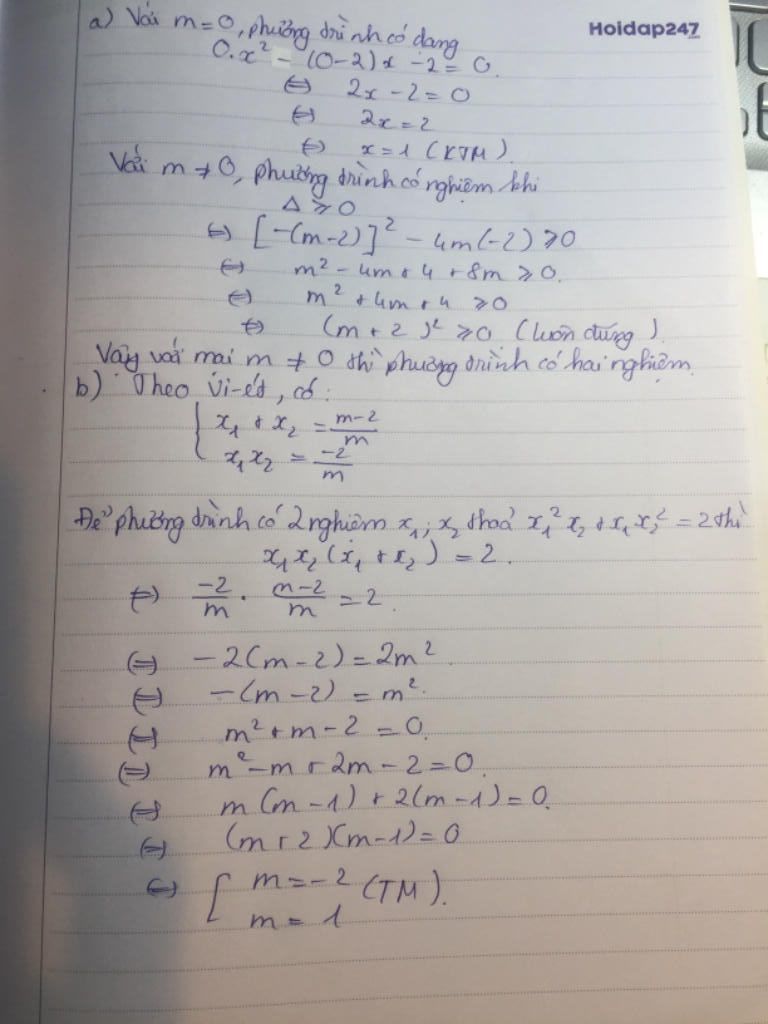 a) Với m=0, phương trình có dạng
Hoidap247
0.x² - (0-2)x -2=0.
⇔ 2x-2=0
⇔ 2x=2
⇔ x=1 (KTM).
Với m≠0, phương trình có nghiệm khi
Δ⩾0
⇔ [-(m-2)]² - 4m(-2) ⩾0
⇔ m²-4m+4+8m ⩾0.
⇔ m²+4m+4 ⩾0
⇔ (m+2)² ⩾0 (luôn đúng).
Vậy với mọi m≠0 thì phương trình có hai nghiệm.
b) Theo Vi-ét, có:
{ x₁+x₂ = \frac{m-2}{m}
x₁x₂ = \frac{-2}{m}
Để phương trình có 2 nghiệm x₁; x₂ thoả x₁²x₂+x₁x₂²=2 thì
x₁x₂(x₁+x₂)=2.
⇔ \frac{-2}{m} . \frac{m-2}{m} =2.
⇔ -2(m-2)=2m².
⇔ -(m-2)=m².
⇔ m²+m-2=0.
⇔ m²-m+2m-2=0.
⇔ m(m-1)+2(m-1)=0.
⇔ (m+2)(m-1)=0
⇔ [ m=-2 (TM).
m=1